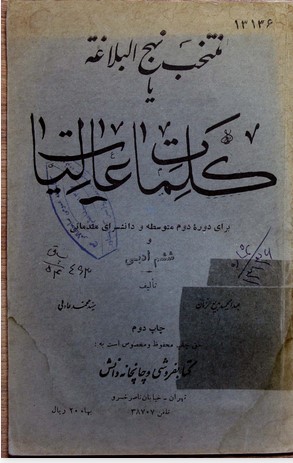 ۱۳۱۳۶
منتخب نهج البلاغه
یا
کلمات عالیات
برای دورهٔ دوم متوسطه و دانشسرای مقدماتی
و
ششم ادبی
تألیف
سید محمد صادقی
چاپ دوم
حق چاپ محفوظ و مخصوص است به :
کتابفروشی و چاپخانه دانش
تهران - خیابان ناصر خسرو
تلفن ۳۸۷۰۷
بهاء ۲۰ ریال